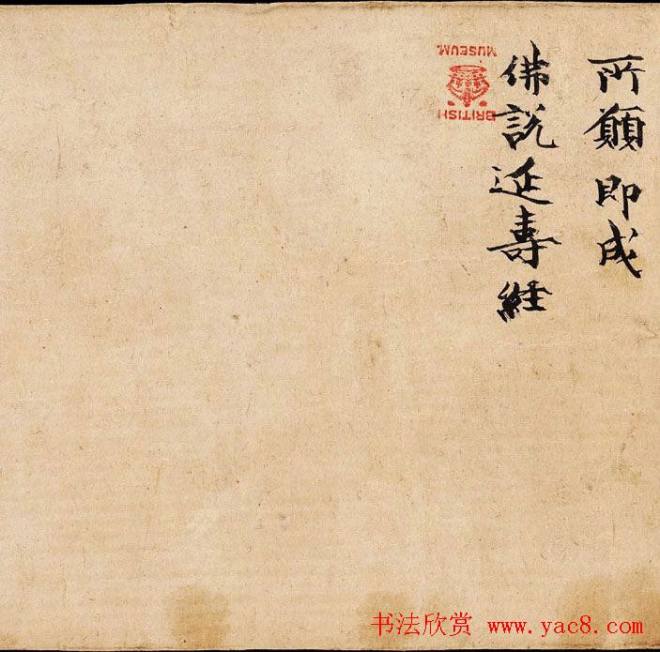 所願即成
佛說延壽經
BRITISH
MUSEUM
书法欣赏 www.yac8.com